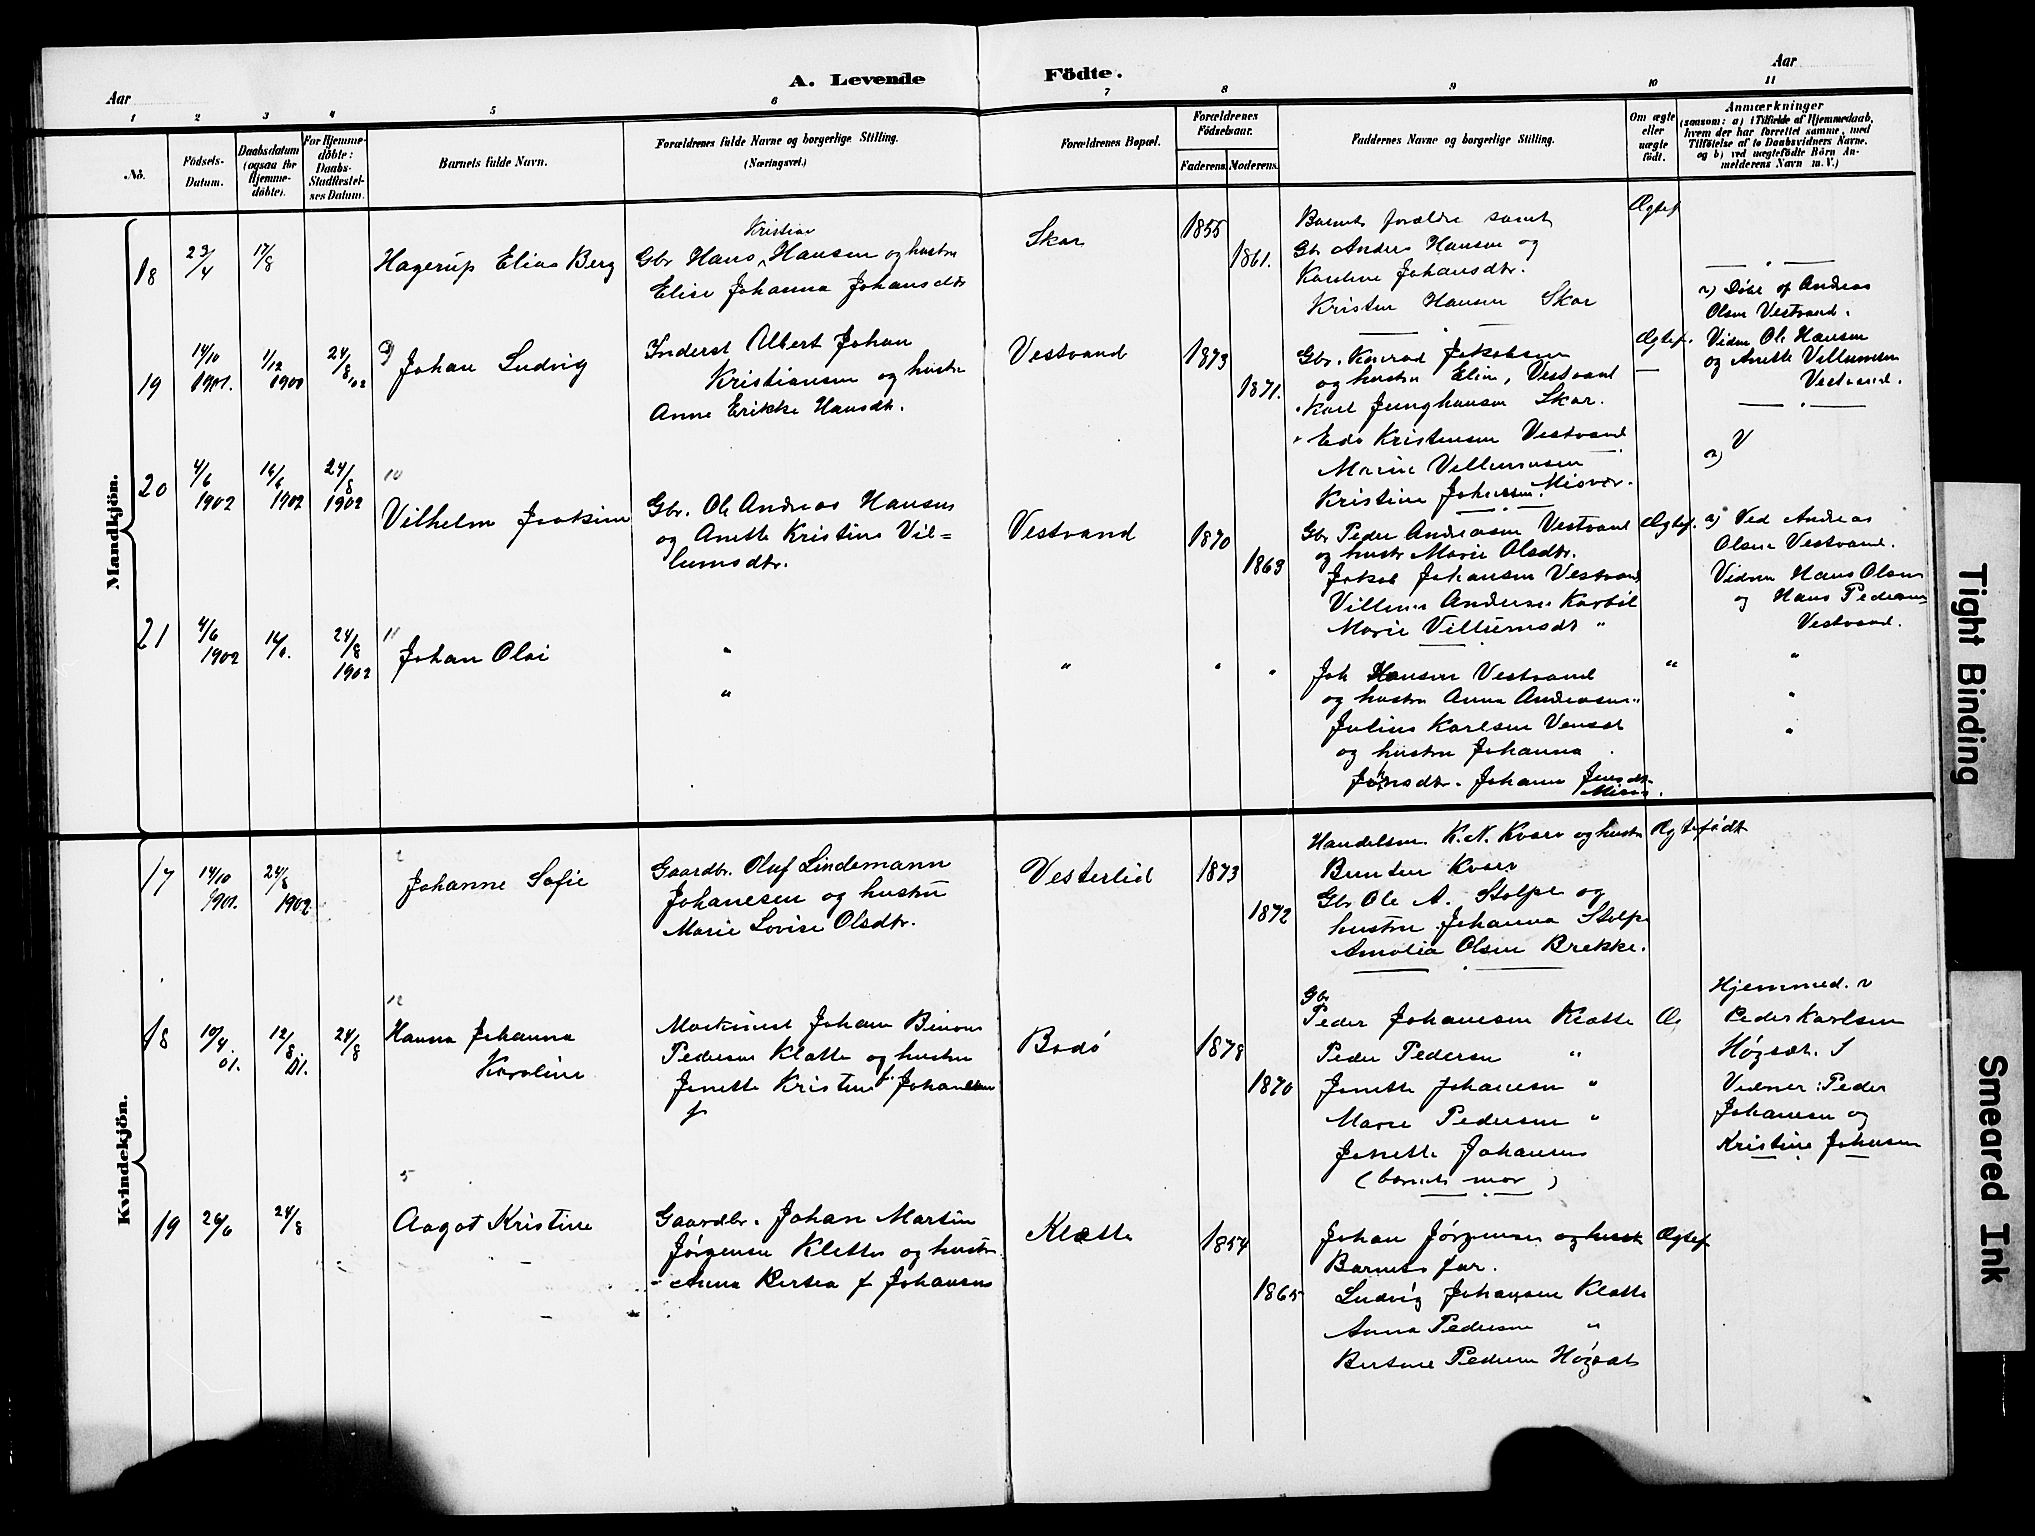 A. Levende Födte.
Aar
Aar
1 2 3 4 5 6 7 8 9 10 11
No.
Födsels-
Datum.
Daabsdatum
(ogsaa for
Hjemme-
döbte).
For Hjemme-
döbte:
Daabs-
Stadfæstel-
ses Datum.
Barnets fulde Navn.
Forældrenes fulde Navne og borgerlige Stilling.
(Næringsvei.)
Forældrenes Bopæl.
Forældrenes
Födselsaar.
Faderens. Moderens.
Faddernes Navne og borgerlige Stilling.
Om ægte
eller
uægte
födt.
Anmærkninger
(saasom: a) i Tilfælde af Hjemmedaab,
hvem der har forrettet samme, med
Tilföielse af to Daabsvidners Navne,
og b) ved uægtefödte Börn An-
melderens Navn m. V.)
Mandkjön.
18
23/4
17/8
Hagerup Elias Berg
Kristian
Gbr Hans Hansen og hustru
Elise Johanna Johansdtr
Skar
1855
1861.
Barnets forældre samt
Gbr Anders Hansen og
Karoline Johansdtr.
Kristen Hansen Skar
Ægtef
19
14/10
1901.
1/12
1900
24/8
02
9)
Johan Ludvig
Inderst Albert Johan
Kristiansen og hustru
Anne Erikke Hansdtr.
Vestvand
1873
1871.
Gbr. Konrad Jakobsen
og hustru Elin, Vestvand
Karl Junghansen Skar.
" Eda Kristensen Vestvand
Marie Villumsen
Kristine Johansen. Misvær.
Ægtef.
a) Döbt af Andreas
Olsen Vestvand.
Vidner Ole Hansen
og Anette Villumsen
Vestvand.
a)
20
4/6
1902
16/6
1902
24/8
1902
10
Vilhelm Joakim
Gbr. Ole Andreas Hansen
og Anette Kristine Vil=
lumsdtr.
Vestvand
1870
1863
Gbr Peder Andreasen Vestvand
og hustr Marie Olsdtr.
Jakob Johansen Vestvand
Villum Andersen Karbøl
Marie Villumsdt "
Ægtef.
a) Ved Andreas
Olsen Vestvand.
Vidner Hans Olsen
og Hans Pedersen
Vestvand.
21
4/6
1902
16/6.
24/8
1902
11
Johan Olai
"
"
"
"
"
Joh Hansen Vestvand
og hustru Anna Andreasen
Julius Karlsen Venset
og hustru Johanna
Jónsdtr. Johanna Jensdtr.
Misv.
"
"
"
"
Kvindekjön.
17
14/10
1901.
24/8
1902
2
Johanne Sofie
Gaardbr. Oluf Lindemann
Johanesen og hustru
Marie Lovise Olsdtr.
Vesterlid
1873
1872
Handelsm. K. N. Kvær og hustru
Buntin Kvær
Gbr Ole A. Stolpe og
hustru Johanna Stolpe
Amalia Olsen Brekke.
Ægtefödt
18
10/4
01.
12/8
01.
24/8
12
Hanna Johanna
Karoline
Maskinist Johan Benoni
Pedersen Klætte og hustru
Jenette Kristine f. Johansen
f
Bodø
1878
1870
Gbr
Peder Johanesen Klætte
Peder Pedersen "
Jenette Johanesen "
Marie Pedersen "
Jenette Johansen
(barnets mor)
Æ
Hjemmed. v
Peder Karlsen
Høgsæt.
Vidner: Peder
Johanesen og
Kristine Johansen
19
26/6
24/8
5
Aagot Kristine
Gaardbr. Johan Martin
Jørgensen Klette og hustru
Anna Bertea f Johansen
Klætte
1854
1865
Johan Jørgensen og hustr
Barnets far.
Ludvig Johansen Klætte
Anna Pedersen "
Bertine Pedersen Høgsæt
Ægtef
Tight Binding
Smeared Ink